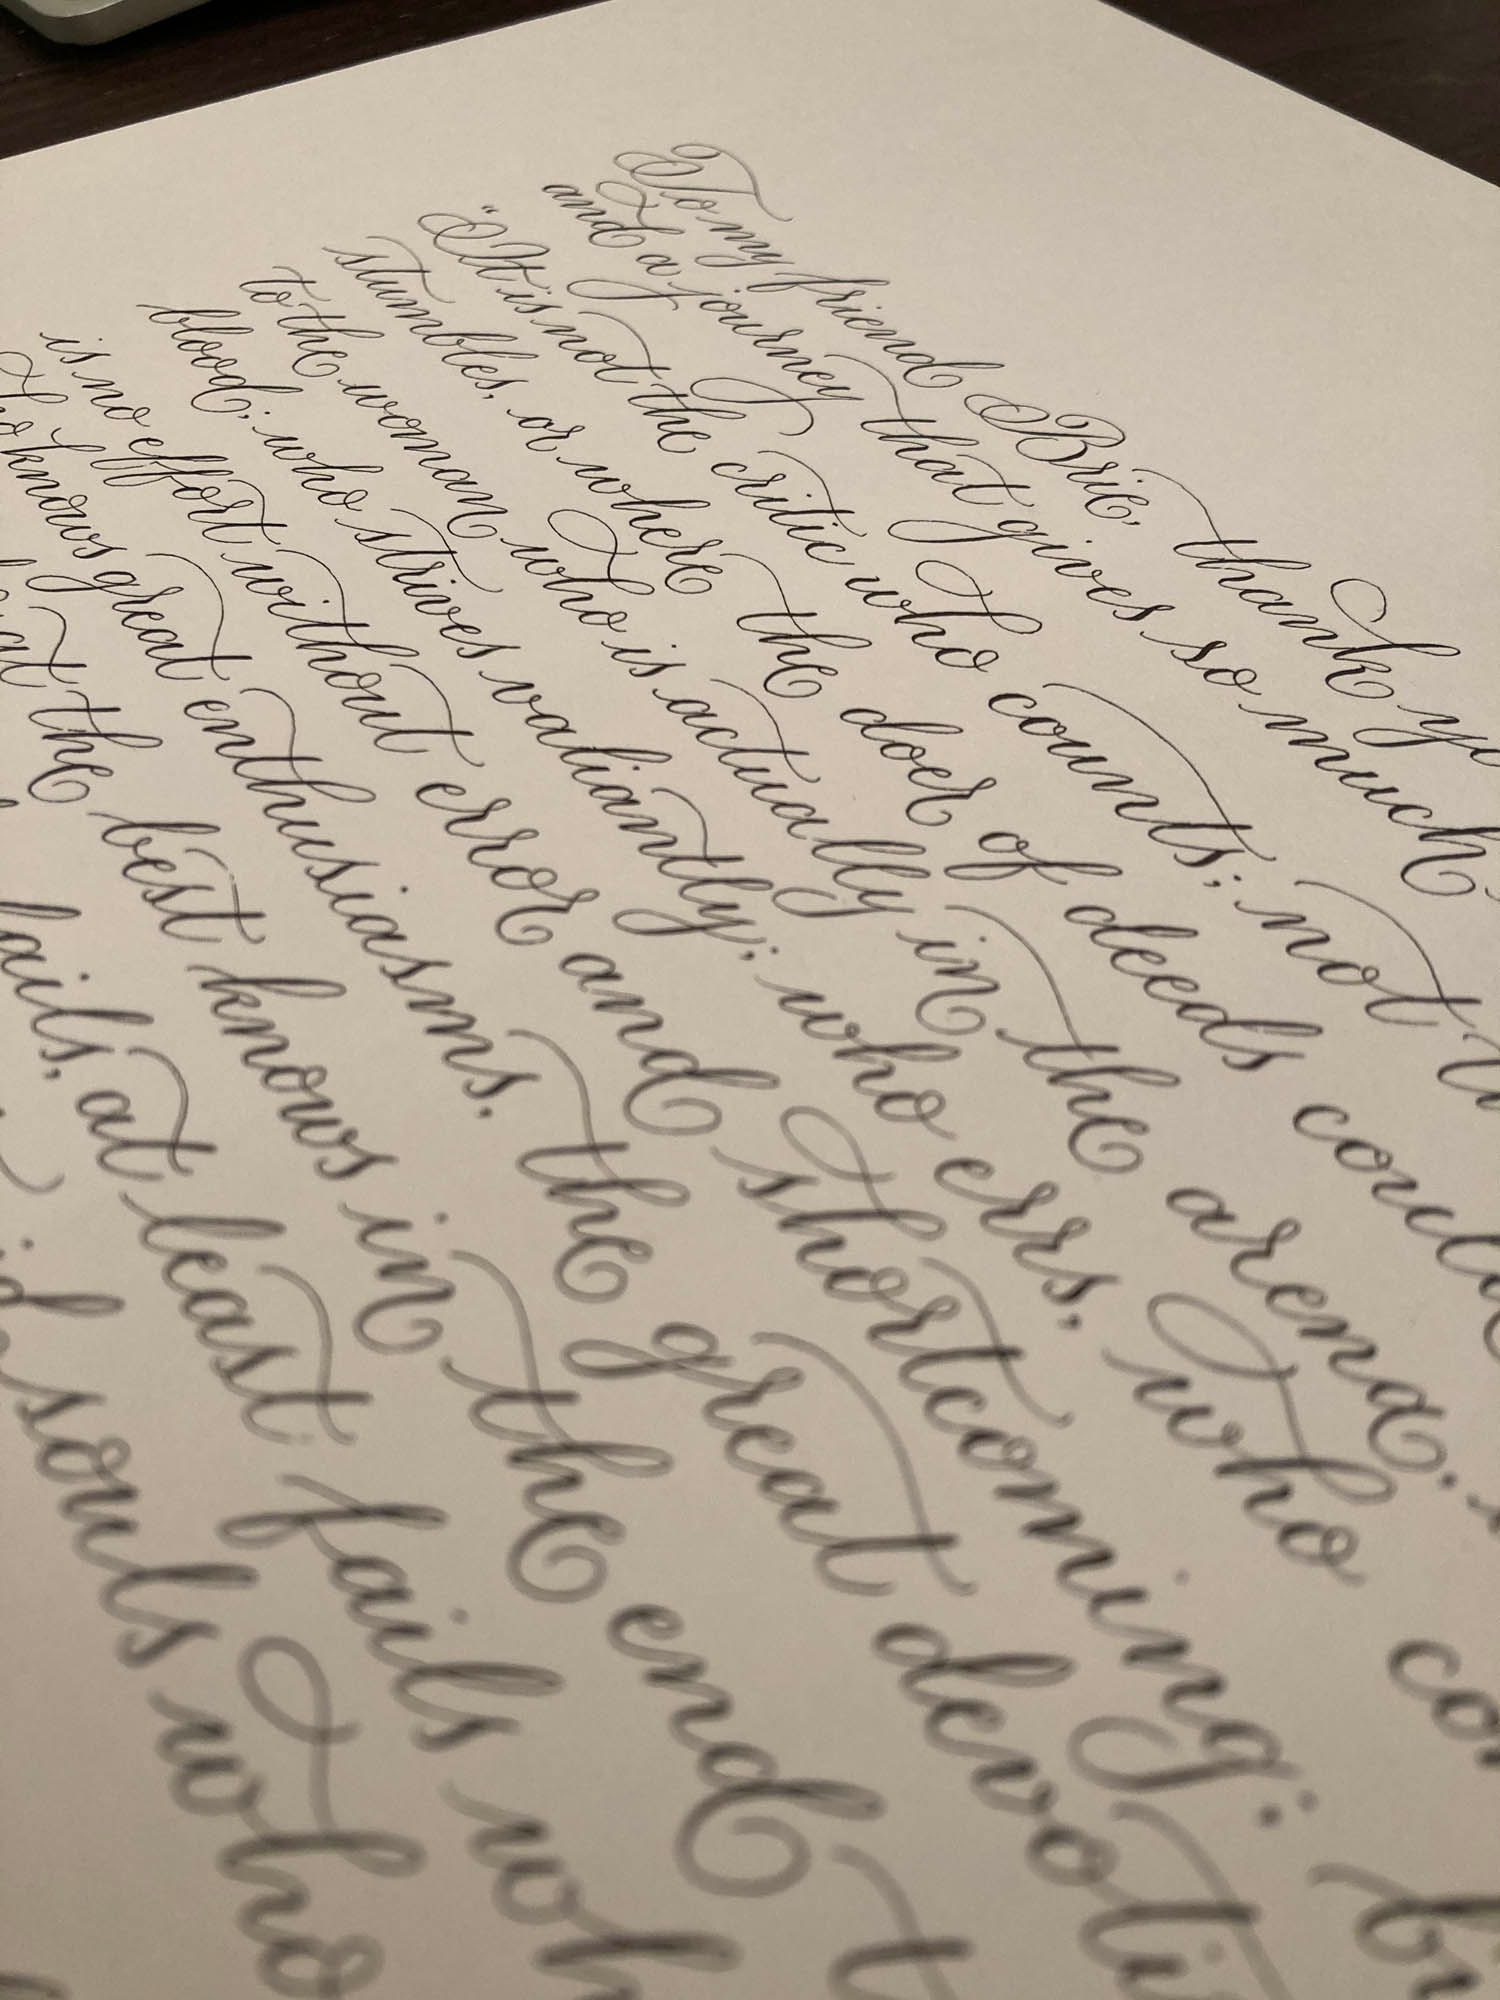 To my friend Brie, thank yo
and a journey that gives so much.
"It is not the critic who counts; not
stumbles, or where the doer of deeds coul
to the woman who is actually in the arena;
blood; who strives valiantly; who errs, who co
is no effort without error and shortcoming; bu
knows great enthusiasms, the great devoti
at the best knows in the end t
fails, at least fails wh
souls who